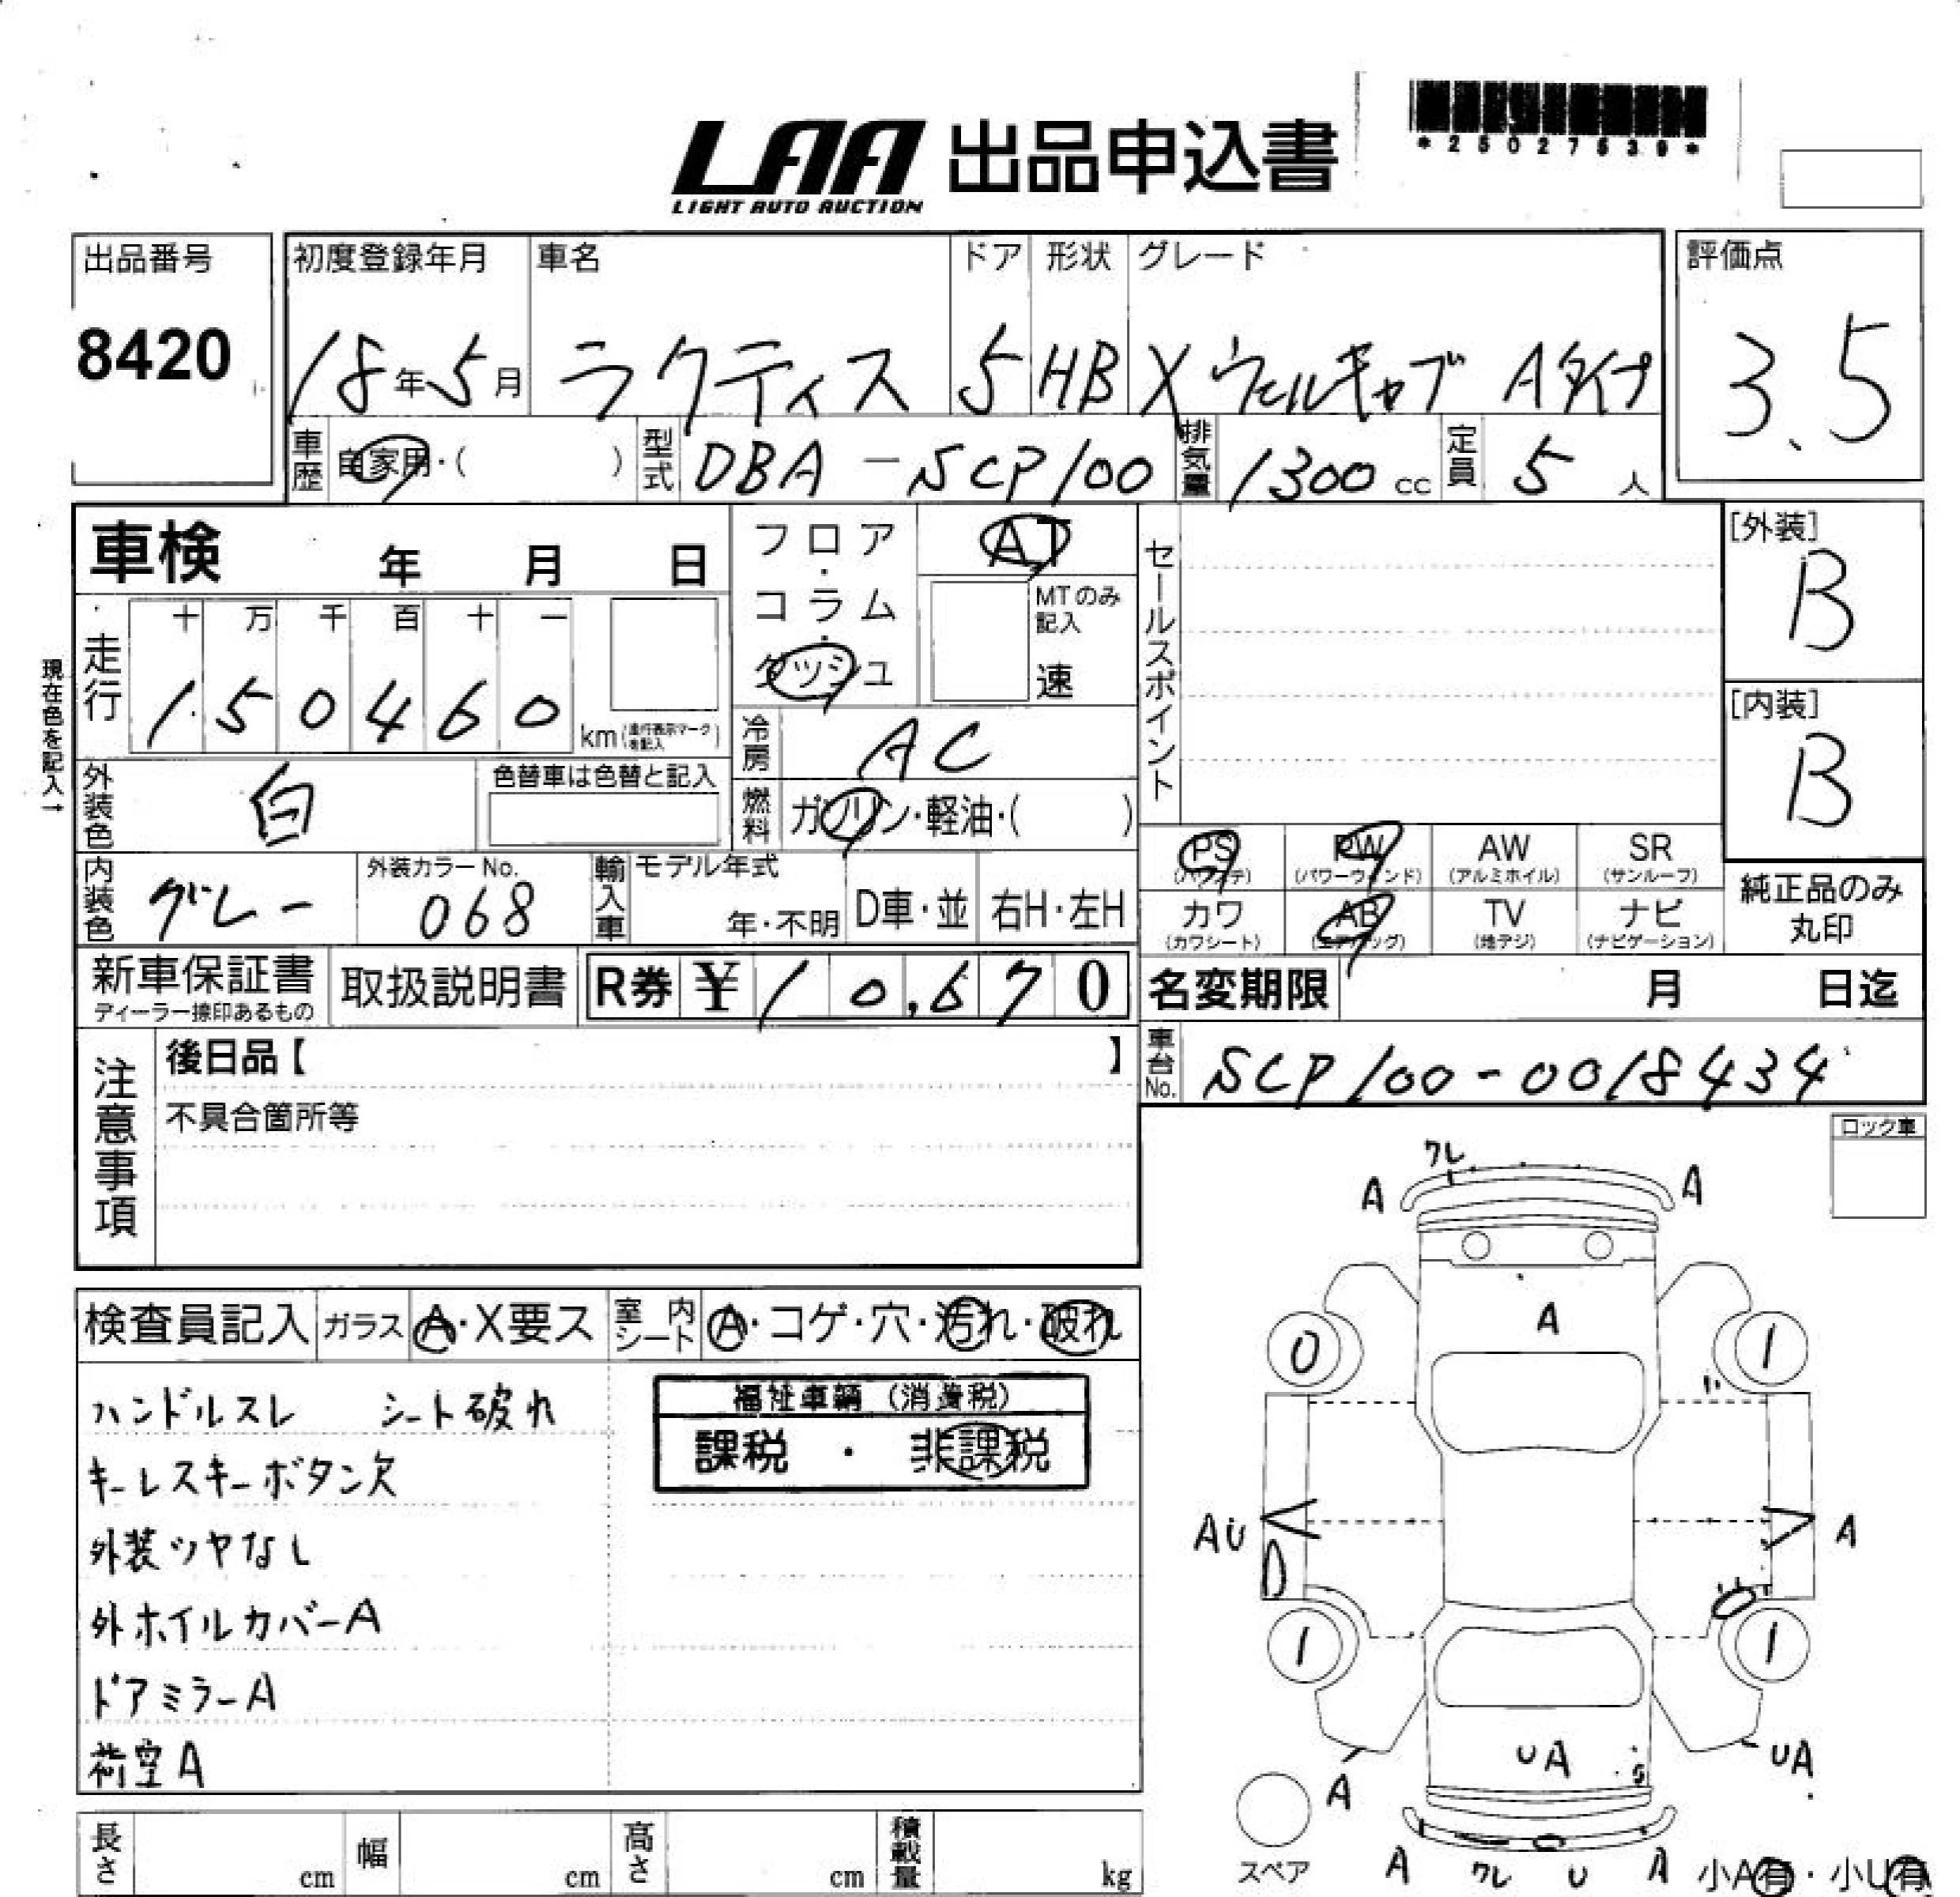 LAA 出品申込書
LIGHT AUTO AUCTION
*25027539*
出品番号 初度登録年月 車名 ドア 形状 グレード 評価点
8420 18年5月 ラクティス 5 HB X ウェルキャブ Aタイプ 3.5
車歴 自家用・( ) 型式 DBA-SCP100 排気量 1300 cc 定員 5 人
車検 年 月 日
フロア・コラム・ダッシュ AT
MTのみ記入 速
セールスポイント
[外装] B
[内装] B
現在色を記入→
走行 十 万 千 百 十 一
1 5 0 4 6 0 km (走行表示マークを記入)
冷房 AC
外装色 白 色替車は色替と記入
燃料 ガソリン・軽油・( )
PS (パワステ) PW (パワーウィンド) AW (アルミホイル) SR (サンルーフ)
カワ (カワシート) AB (エアバッグ) TV (地デジ) ナビ (ナビゲーション)
純正品のみ丸印
内装色 グレー 外装カラーNo. 068 輸入車 モデル年式 年・不明 D車・並 右H・左H
新車保証書 ディーラー捺印あるもの 取扱説明書 R券 ¥10,670
名変期限 月 日迄
車台No. SCP100-0018434
注意事項
後日品【 】
不具合箇所等
ロック車
検査員記入 ガラス A・X要ス 室内シート A・コゲ・穴・汚れ・破れ
ハンドルスレ シート破れ
キーレスキーボタン欠
外装ツヤなし
外ホイルカバーA
ドアミラーA
荷室A
福祉車輌(消費税)
課税 ・ 非課税
ワレ
A A
A
0 1
AU A
1 1
UA UA
A
スペア
A ワレ U A
小A有・小U有
長さ cm 幅 cm 高さ cm 積載量 kg